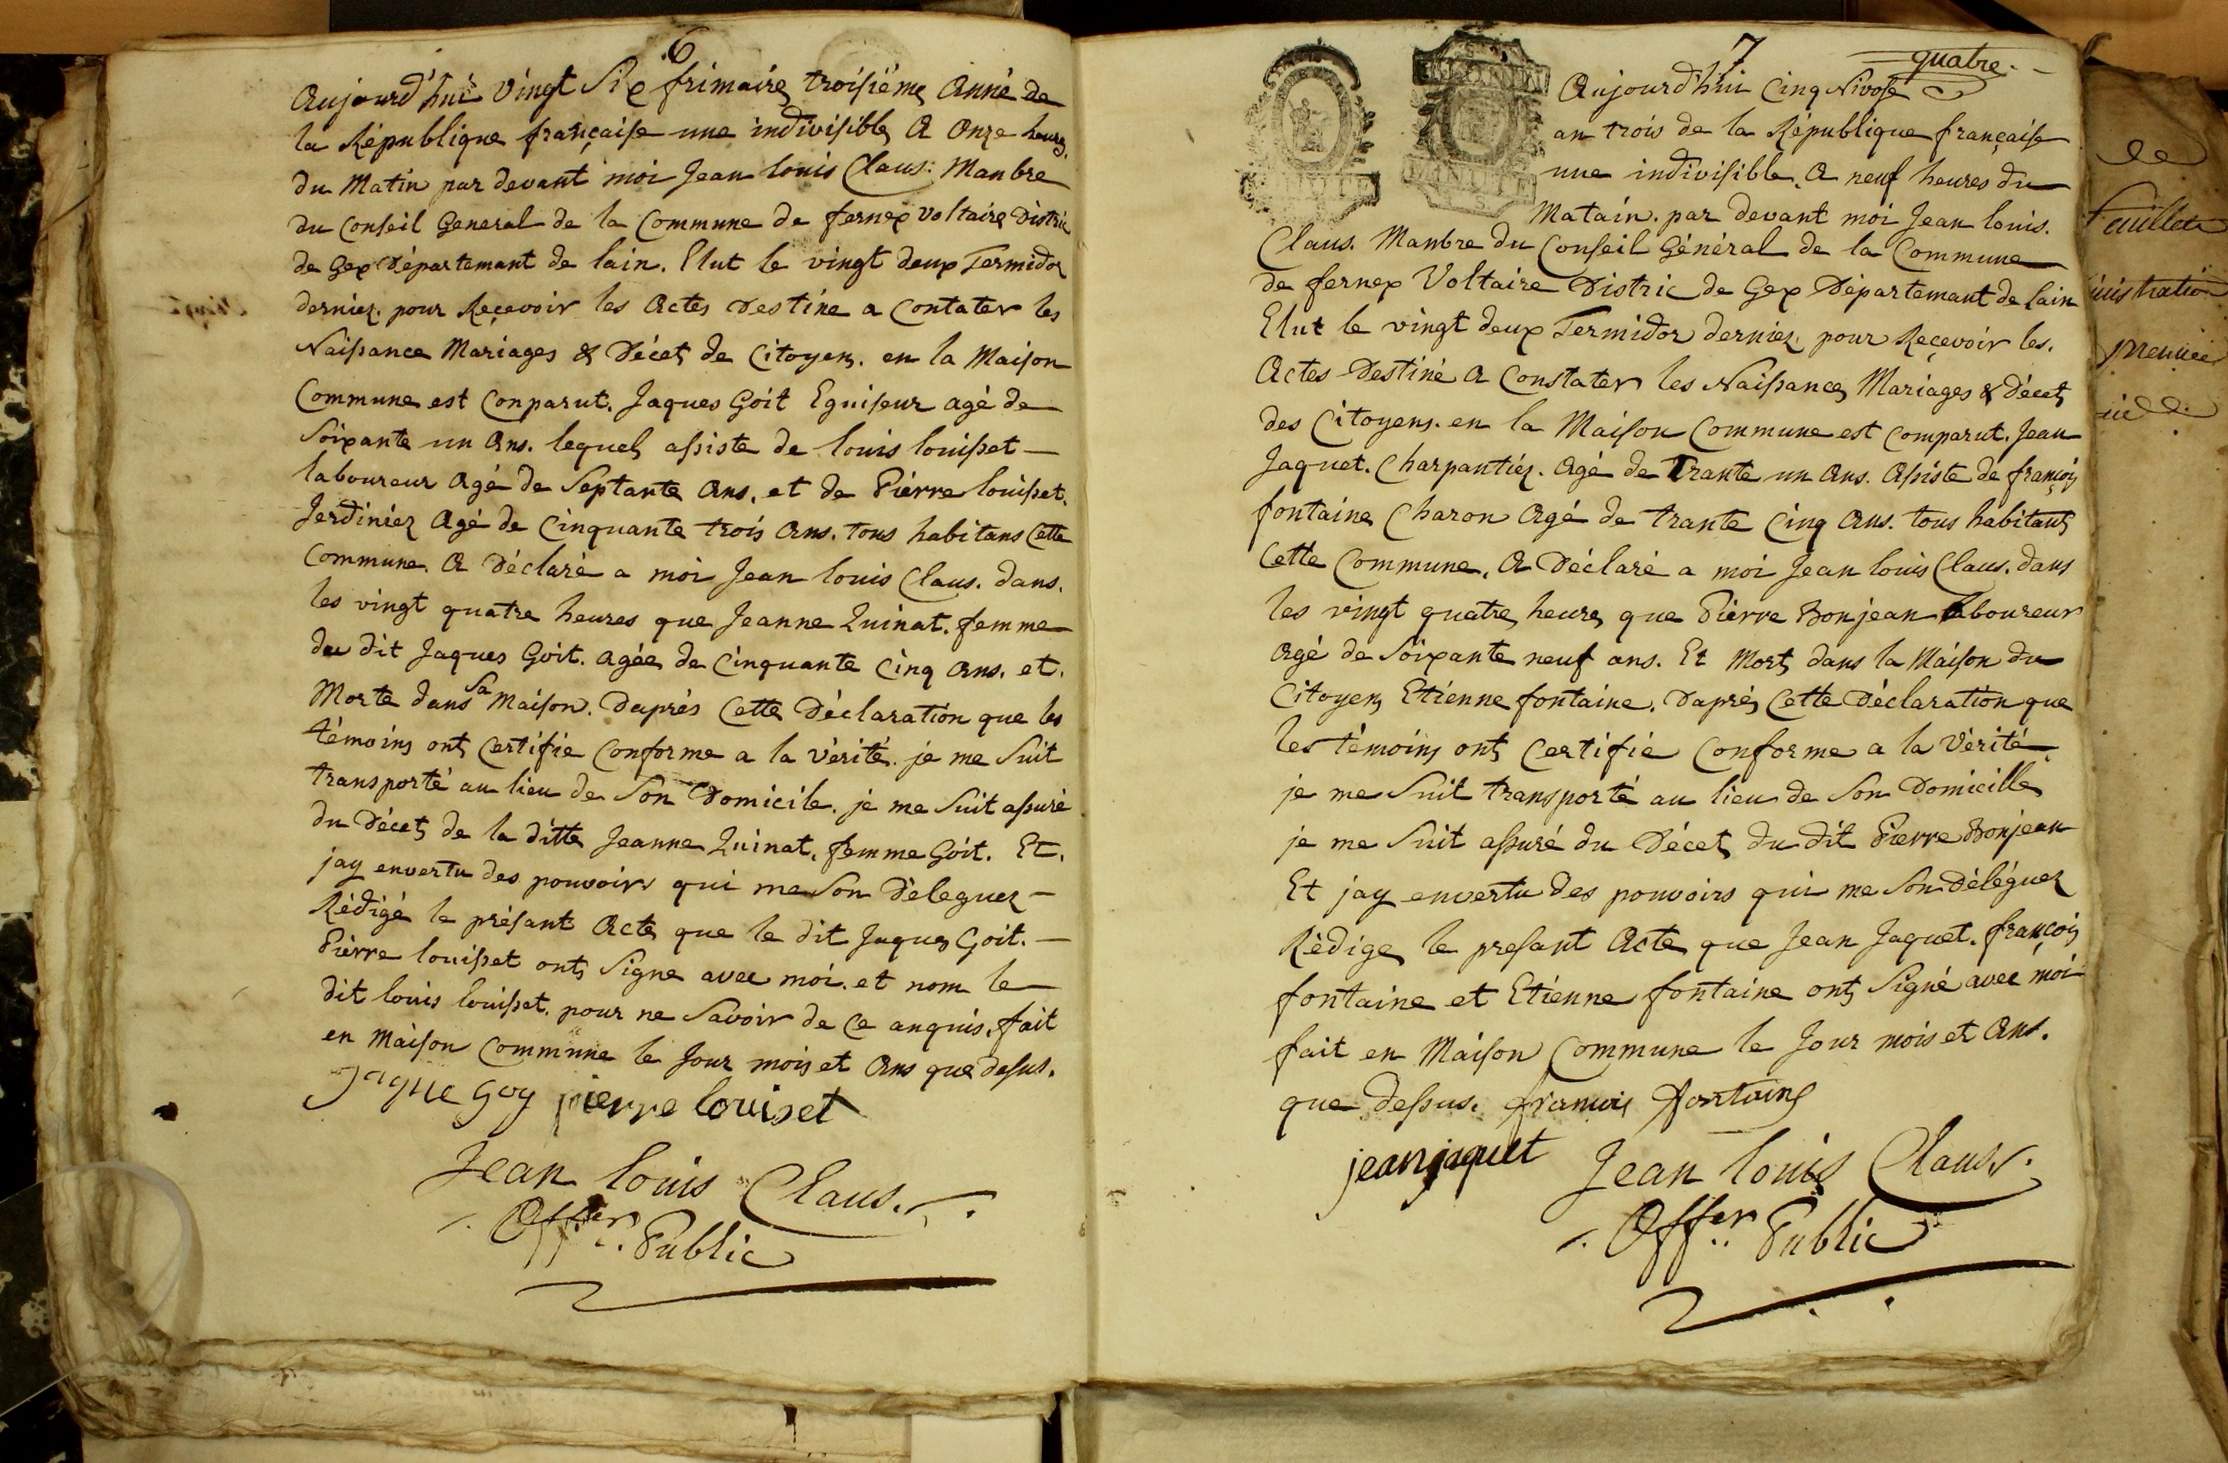 6
Aujourd'hui vingt Six frimaire troisiême Anné de
la République française une indivisible A Onze heures
du Matin par devant moi Jean louis Claus. Manbre
du Conseil General de la Commune de fernex voltaire Distric
de Gex Département de lain. Elut le vingt deux Termidor
derniez. pour Reçevoir les Actes Destine a Contater les
Naissance Mariages & Décet de Citoyen. en la Maison
Commune est Conparut. Jaques Goit Eguiseur agé de
Soixante un Ans. lequel assiste de louis louisset
laboureur Agé de Septante Ans. et de Piérre louisset.
Jerdiniez Agé de Cinquante trois Ans. tous habitans Cette
Commune. A Déclaré a moi Jean louis Claus. dans.
les vingt quatre heures que Jeanne Quinat. femme
du dit Jaques Goit. agée de Cinquante Cinq Ans. et.
Morte dans sa Maison. Daprés Cette Déclaration que les
témoins ont Certifie Conforme a la vérité. je me Suit
transporté au lieu de Son Domicile. je me Suit assuré
du Décet de la ditte Jeanne Quinat. femme Goit. Et.
jay envertu des pouvoirs qui me Son Déleguez
Rédigé le présant Acte que le dit Jaques Goit.
Piérre louisset ont Signe avec moi. et nom le
dit louis louisset. pour ne Savoir de Ce anquis. fait
en Maison Commune le Jour mois et Ans que desus.
jaque goy pierre louiset
Jean louis Claus.
Offer. Public
7
quatre
Aujourd'hui Cinq Nivose
an trois de la République française
une indivisible. A neuf heures du
Matain. par devant moi Jean louis.
Claus. Manbre du Conseil Général de la Commune
de fernex Voltaire Distric de Gex Département de lain
Elut le vingt deux Termidor derniez. pour Reçevoir les.
Actes Destiné A Constater les Naissances Mariages & Décet
des Citoyens. en la Maison Commune est Comparut. Jean
Jaquet. Charpantiez. Agé de Trante un Ans. Assiste de françois
fontaine Charon Agé de trante Cinq Ans. tous habitant
Cette Commune. A Déclaré a moi Jean louis Claus. dans
les vingt quatre heures que Piérre Bonjean laboureur
Agé de Soixante neuf ans. Et Mort dans la Maison du
Citoyen Etienne fontaine. Daprés Cette Déclaration que
les témoins ont Certifié Conforme a la Vérité
je me Suit transporté au lieu de Son Domicille
je me Suit assuré du Décet du dit Pierre Bonjean
Et jay envertu des pouvoirs qui me Son Déléguez
Rédige le presant Acte que Jean Jaquet. françois
fontaine et Etienne fontaine ont Signé avec moi
fait en Maison Commune le Jour mois et Ans.
que dessus. franuois fontaine
jean jaquet Jean louis Claus.
Offer. Public